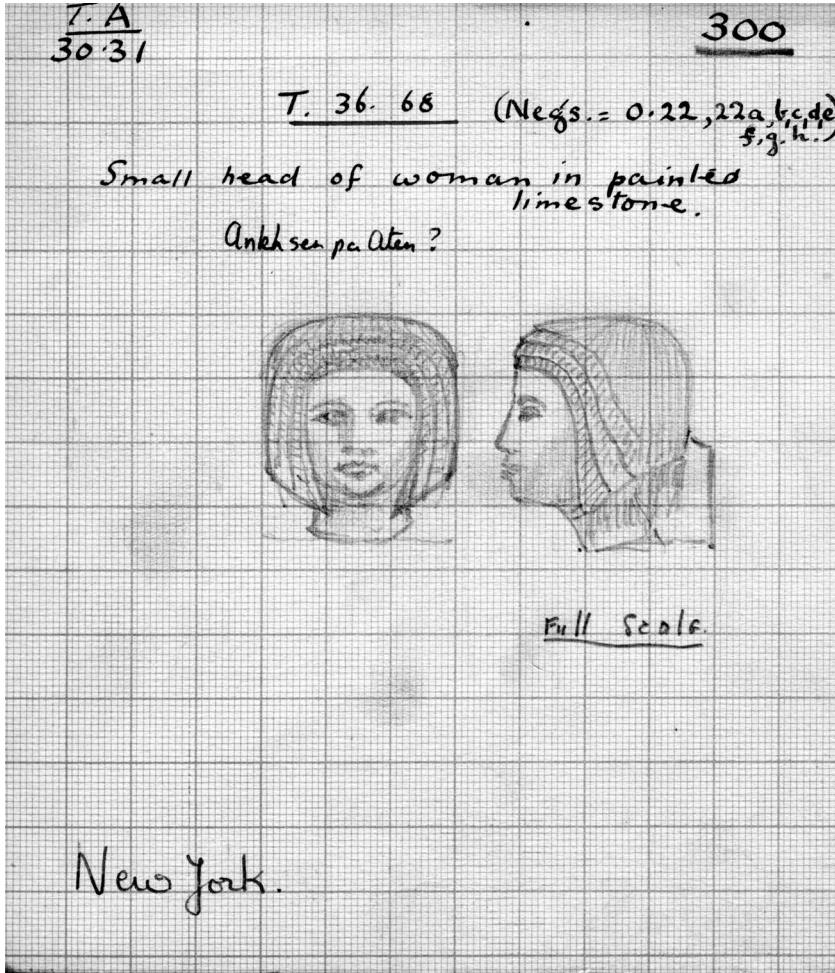 T. A
30·31
300
T. 36. 68 (Negs. = 0.22, 22a, b, c, d, e,
f, g, h.)
Small head of woman in painted
limestone.
Ankhsenpa Aten?
Full Scale.
New York.